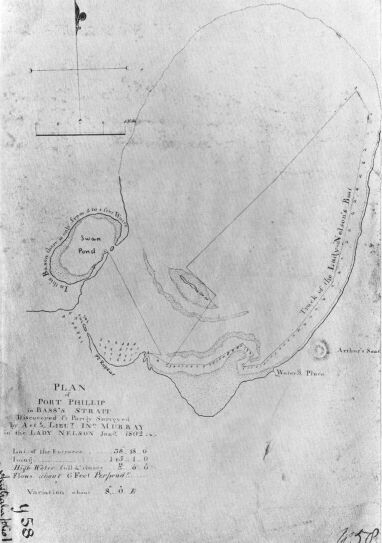 In the Bason there is only from
Swan
Pond
Track of the Lady Nelson's Boat
Arthur's Seat
Waterg. Place
PLAN
of
PORT PHILLIP
in BASS'S STRAIT
Discovered & Partly Surveyed
by Act.g Lieut. Jno. MURRAY
in the LADY NELSON 1802
Lat. of the Entrance 38..18..0
Long. 1..0
High Water full & change
Flows about 6 Feet Perpend.
Variation about 8..0 E
y 58